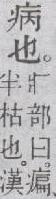 病也。
疒部曰。㾫
半枯也。漢